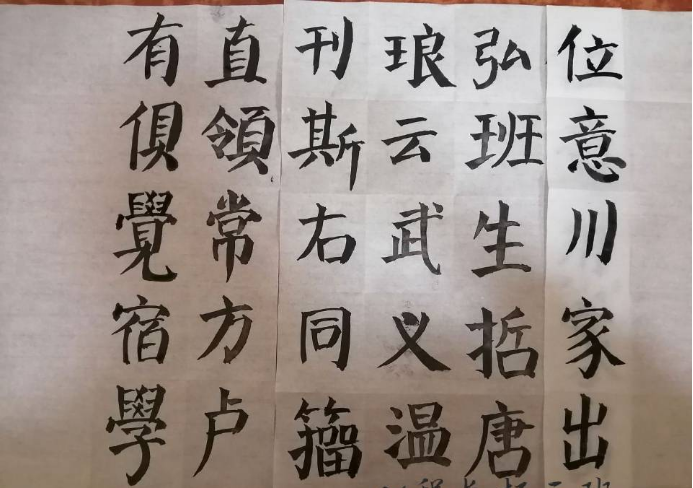 位意川家出
弘班生哲唐
琅云武义温
刊斯右同籀
直領常方卢
有俱覺宿學